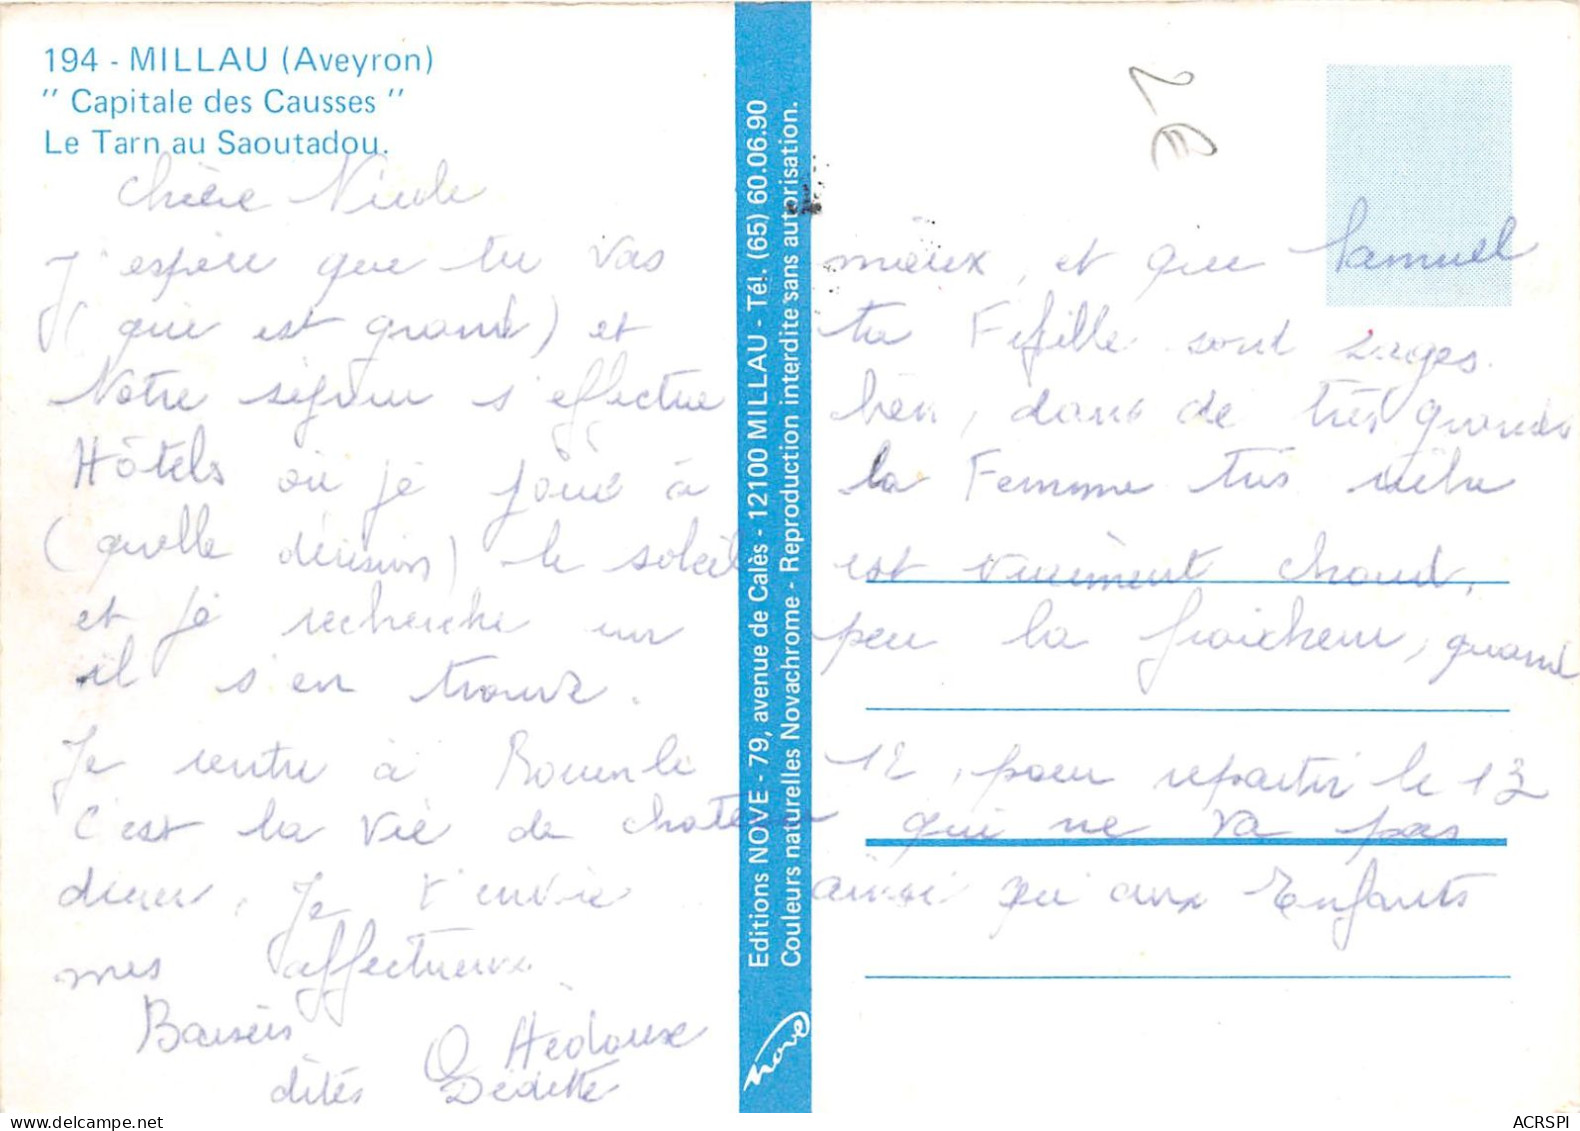 194 - MILLAU (Aveyron)
" Capitale des Causses "
Le Tarn au Saoutadou.
2€
Chère Nicole
J'espère que tu vas mieux, et que Samuel
( qui est grand ) et ta Fifille sont sages.
Notre séjour s'effectue bien, dans de très grands
Hôtels où je joue à la Femme très riche
( quelle dérision ) le soleil est vraiment chaud,
et je recherche un peu la fraicheur, quand
il s'en trouve.
Je rentre à Rouen le 12, pour repartir le 13
C'est la vie de chateau qui ne va pas
durer. Je t'envie ainsi qu'aux Enfants
mes affectueux
Baisers
O Hédouxe
dités Dédette
Editions NOVE - 79, avenue de Calès - 12100 MILLAU - Tél. (65) 60.06.90
Couleurs naturelles Novachrome - Reproduction interdite sans autorisation.
nove
ACRSPI